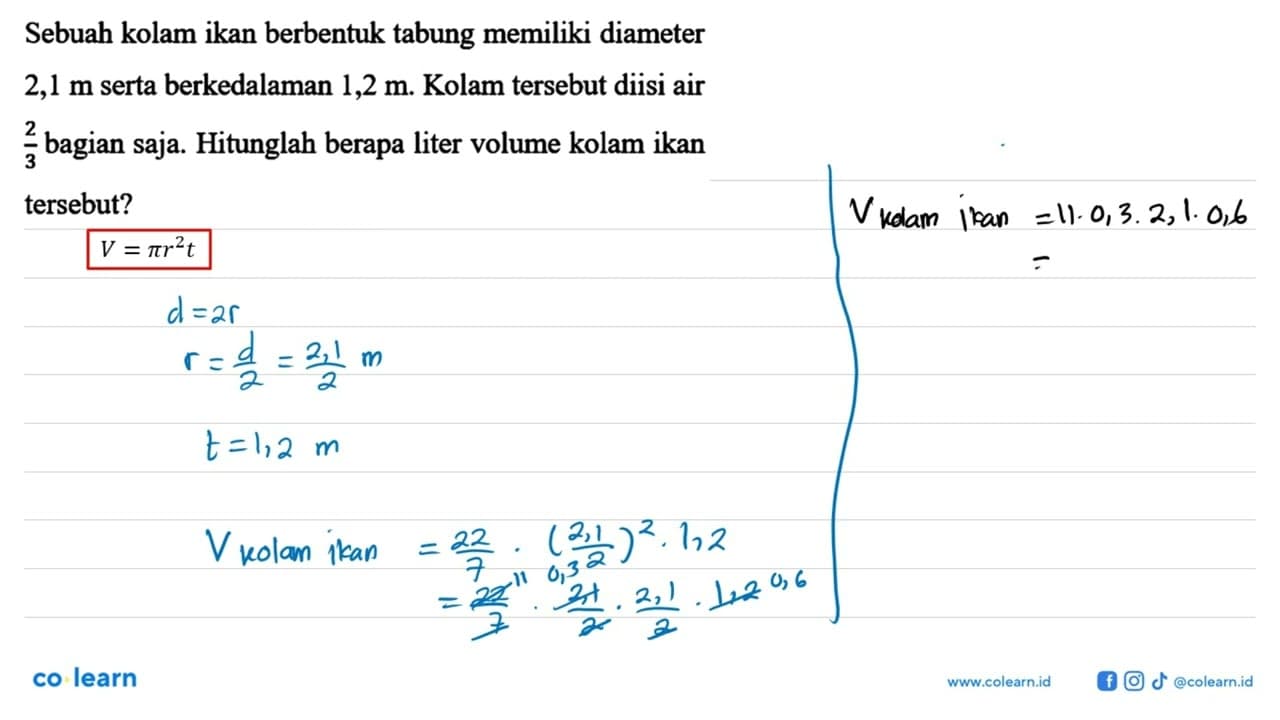 Sebuah kolam ikan berbentuk tabung memiliki diameter
2,1 m serta berkedalaman 1,2 m. Kolam tersebut diisi air
2/3 bagian saja. Hitunglah berapa liter volume kolam ikan
tersebut?
V = πr²t
d = 2r
r = d/2 = 2,1/2 m
t = 1,2 m
V kolam ikan = 22/7 . (2,1/2)² . 1,2
= 22/7 11 . 2,1/2 0,3 . 2,1/2 . 1,2 0,6
V kolam ikan = 11. 0,3. 2,1. 0,6
=
co learn
www.colearn.id
@colearn.id